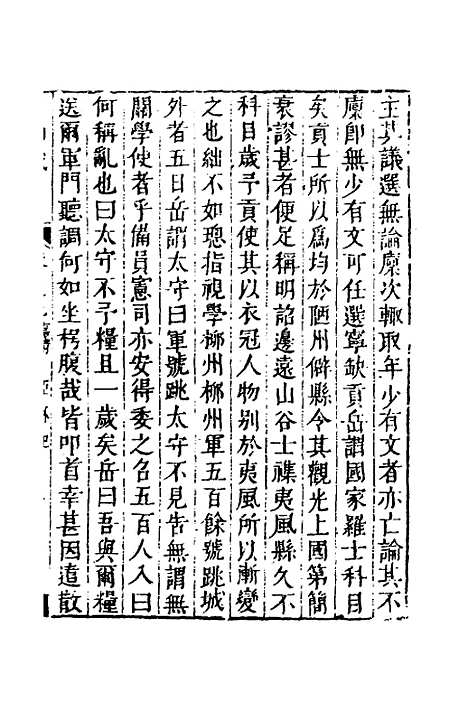 主其議選無論廩次輙取年少有文者亦亡論其不
廩即無少有文可任選寧缺貢岳謂國家羅士科目
矣貢士所以爲均於陋州僻縣令其觀光上國第簡
衰謬甚者便足稱明詔邊遠山谷士襍夷風縣久不
科目歲予貢使其以衣冠人物别於夷風所以漸變
之也絀不如璁指視學柳州柳州軍五百餘號跳城
外者五日岳謂太守曰軍號跳太守不見告無謂無
關學使者乎備員憲司亦安得委之名五百人入曰
何稱亂也曰太守不予糧且一歲矣岳曰吾與爾糧
送爾軍門聽調何如坐枵腹哉皆叩首幸甚因遣散